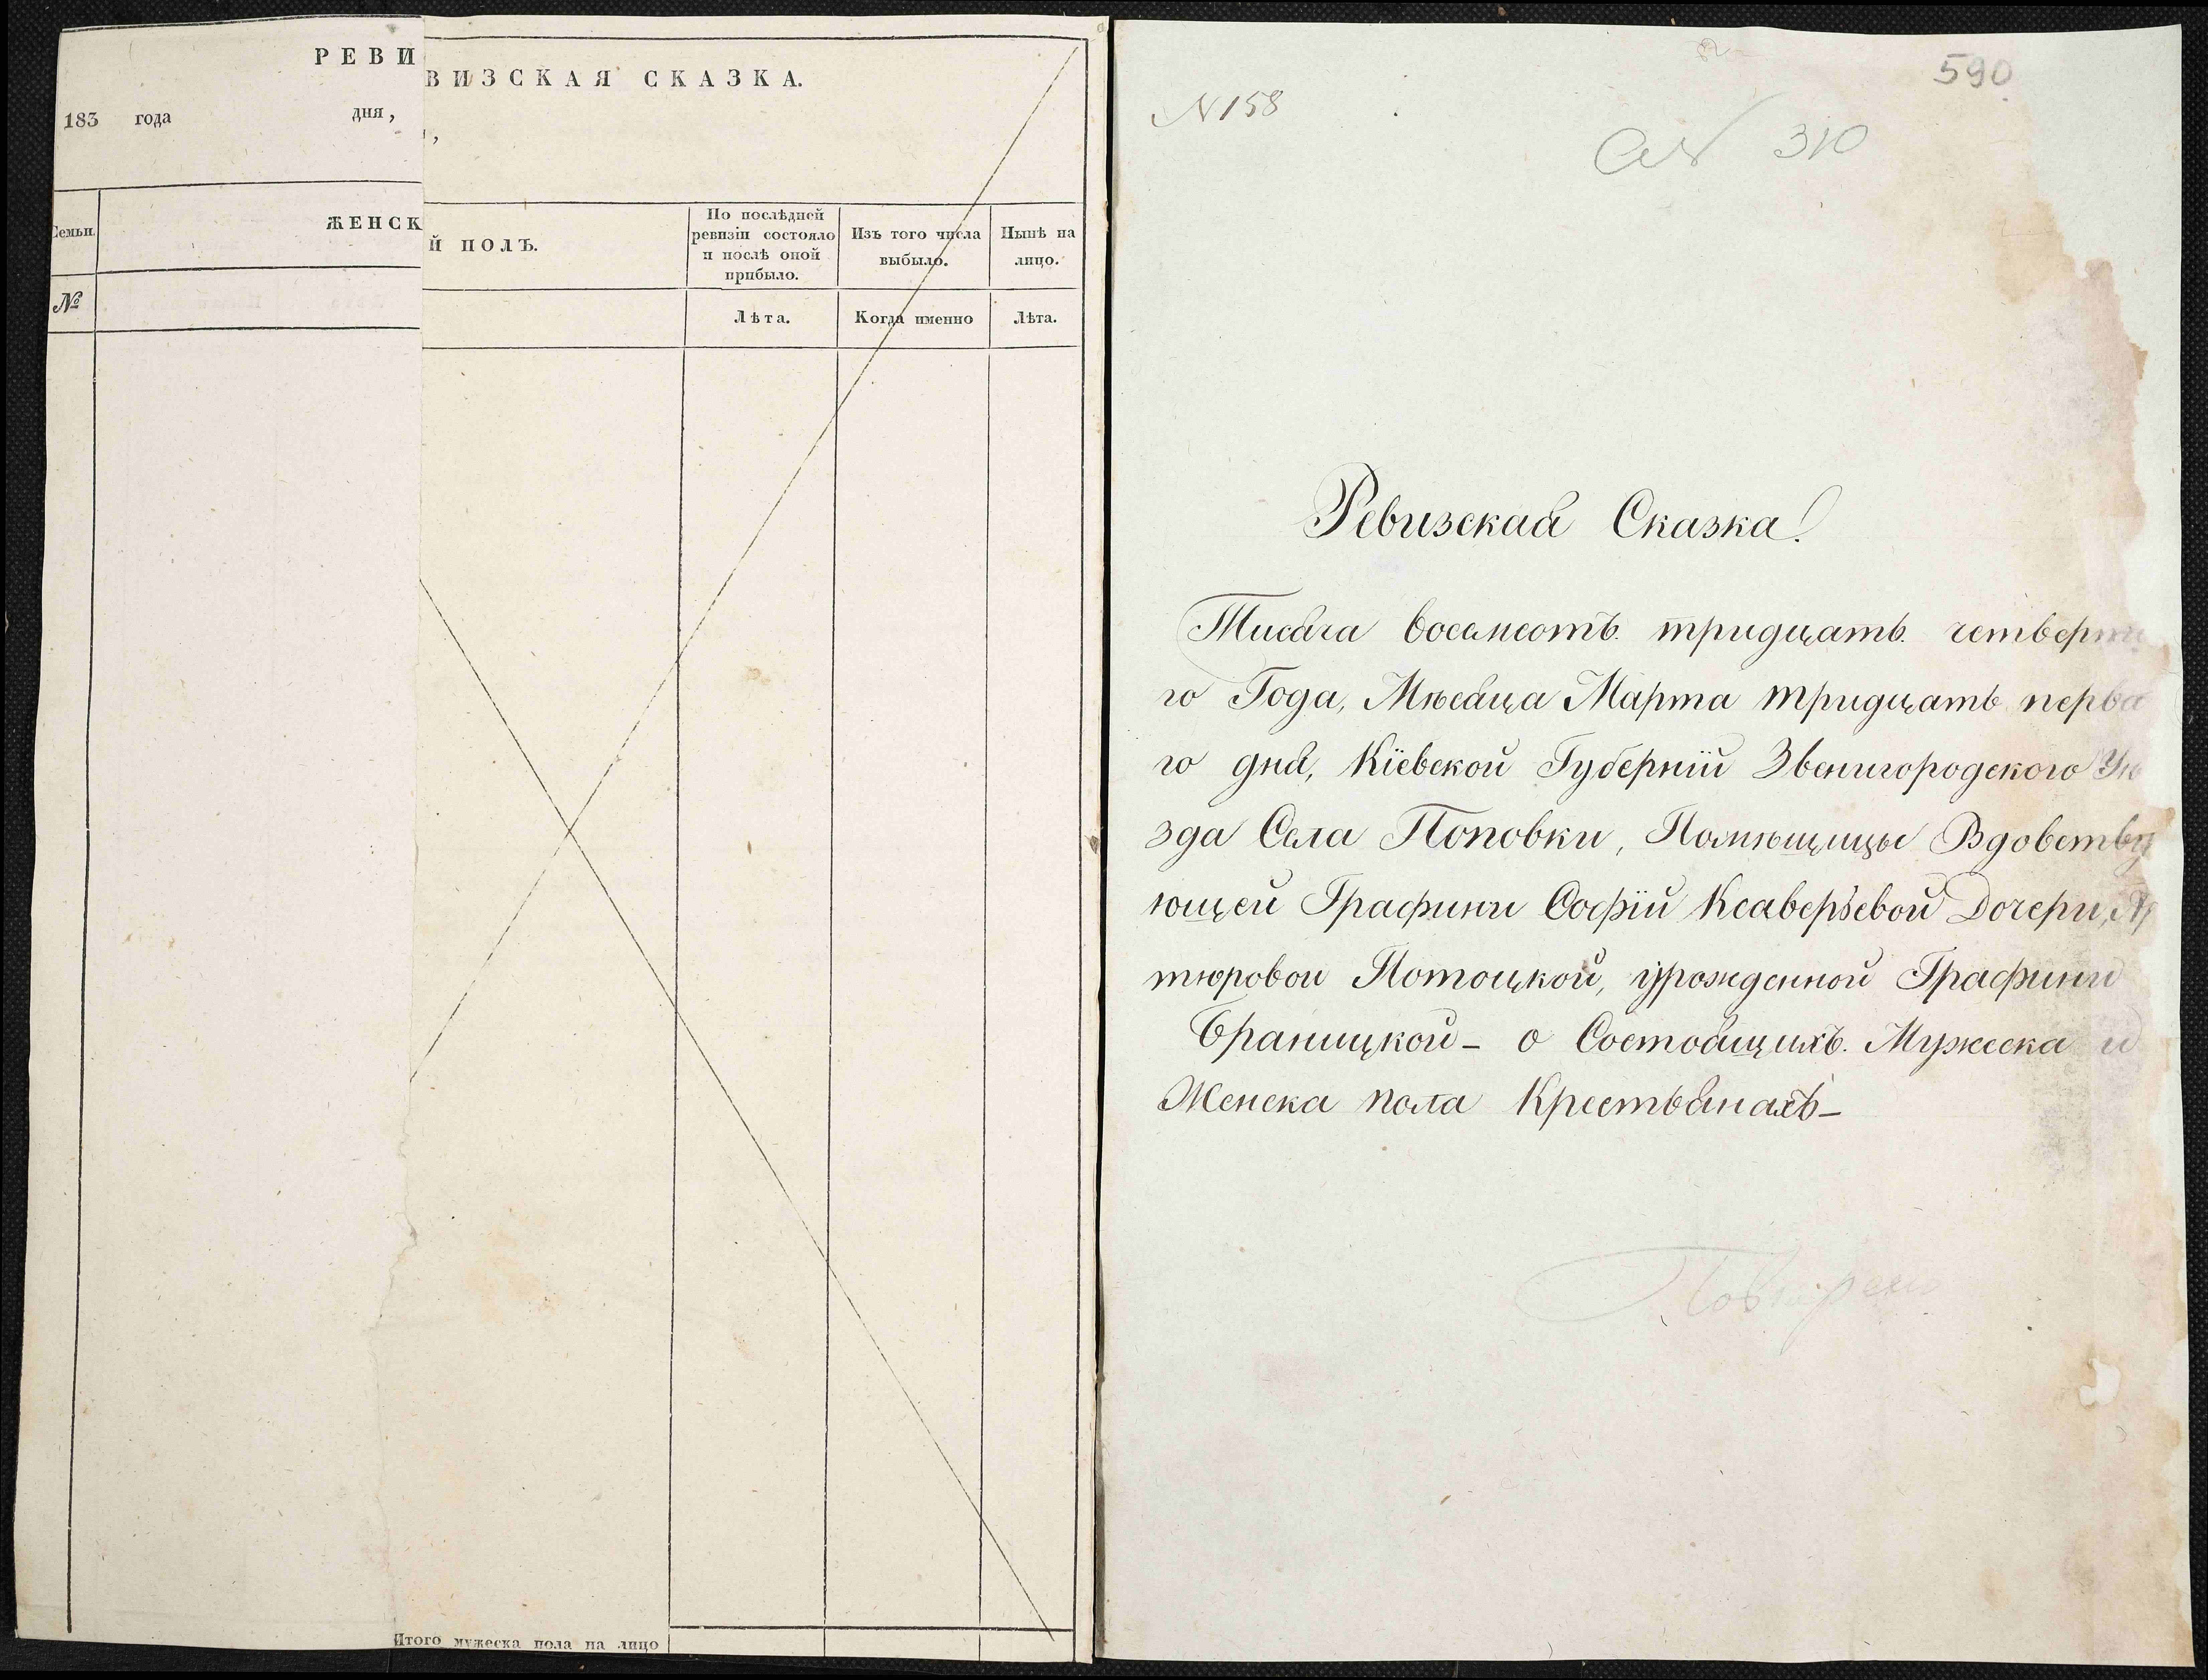 РЕВИ
183 года дня,
Семьи.
ЖЕНСК
№
ВИЗСКАЯ СКАЗКА.
Й ПОЛЪ.
По послѣдней
ревизіи состояло
и послѣ оной
прибыло.
Изъ того числа
выбыло.
Нынѣ на
лицо.
Лѣта.
Когда именно
Лѣта.
Итого мужеска пола на лицо
590
N 158
310
Ревизская Сказка.
Тисяга восемсотъ тридцать четверт
го Года, Мѣсяца Марта тридцать перва
го дня, Кіевской Губерніи Звенигородского Уѣ
зда Села Поповки, Помѣщицы Вдовству
ющей Графини Софіи Ксаверъевой Дочери, Ар
тюровой Потоцкой, урожденной Графини
Браницкой - о Состоящихъ Мужеска и
Женска пола Крестьянахъ -